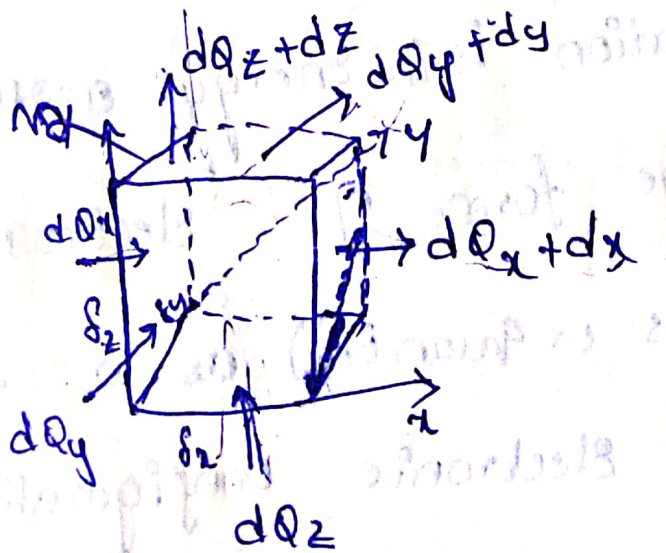 dQz+dz
dQy+dy
y
dQx
dQx+dx
δz
δy
dQy
δx
x
dQz